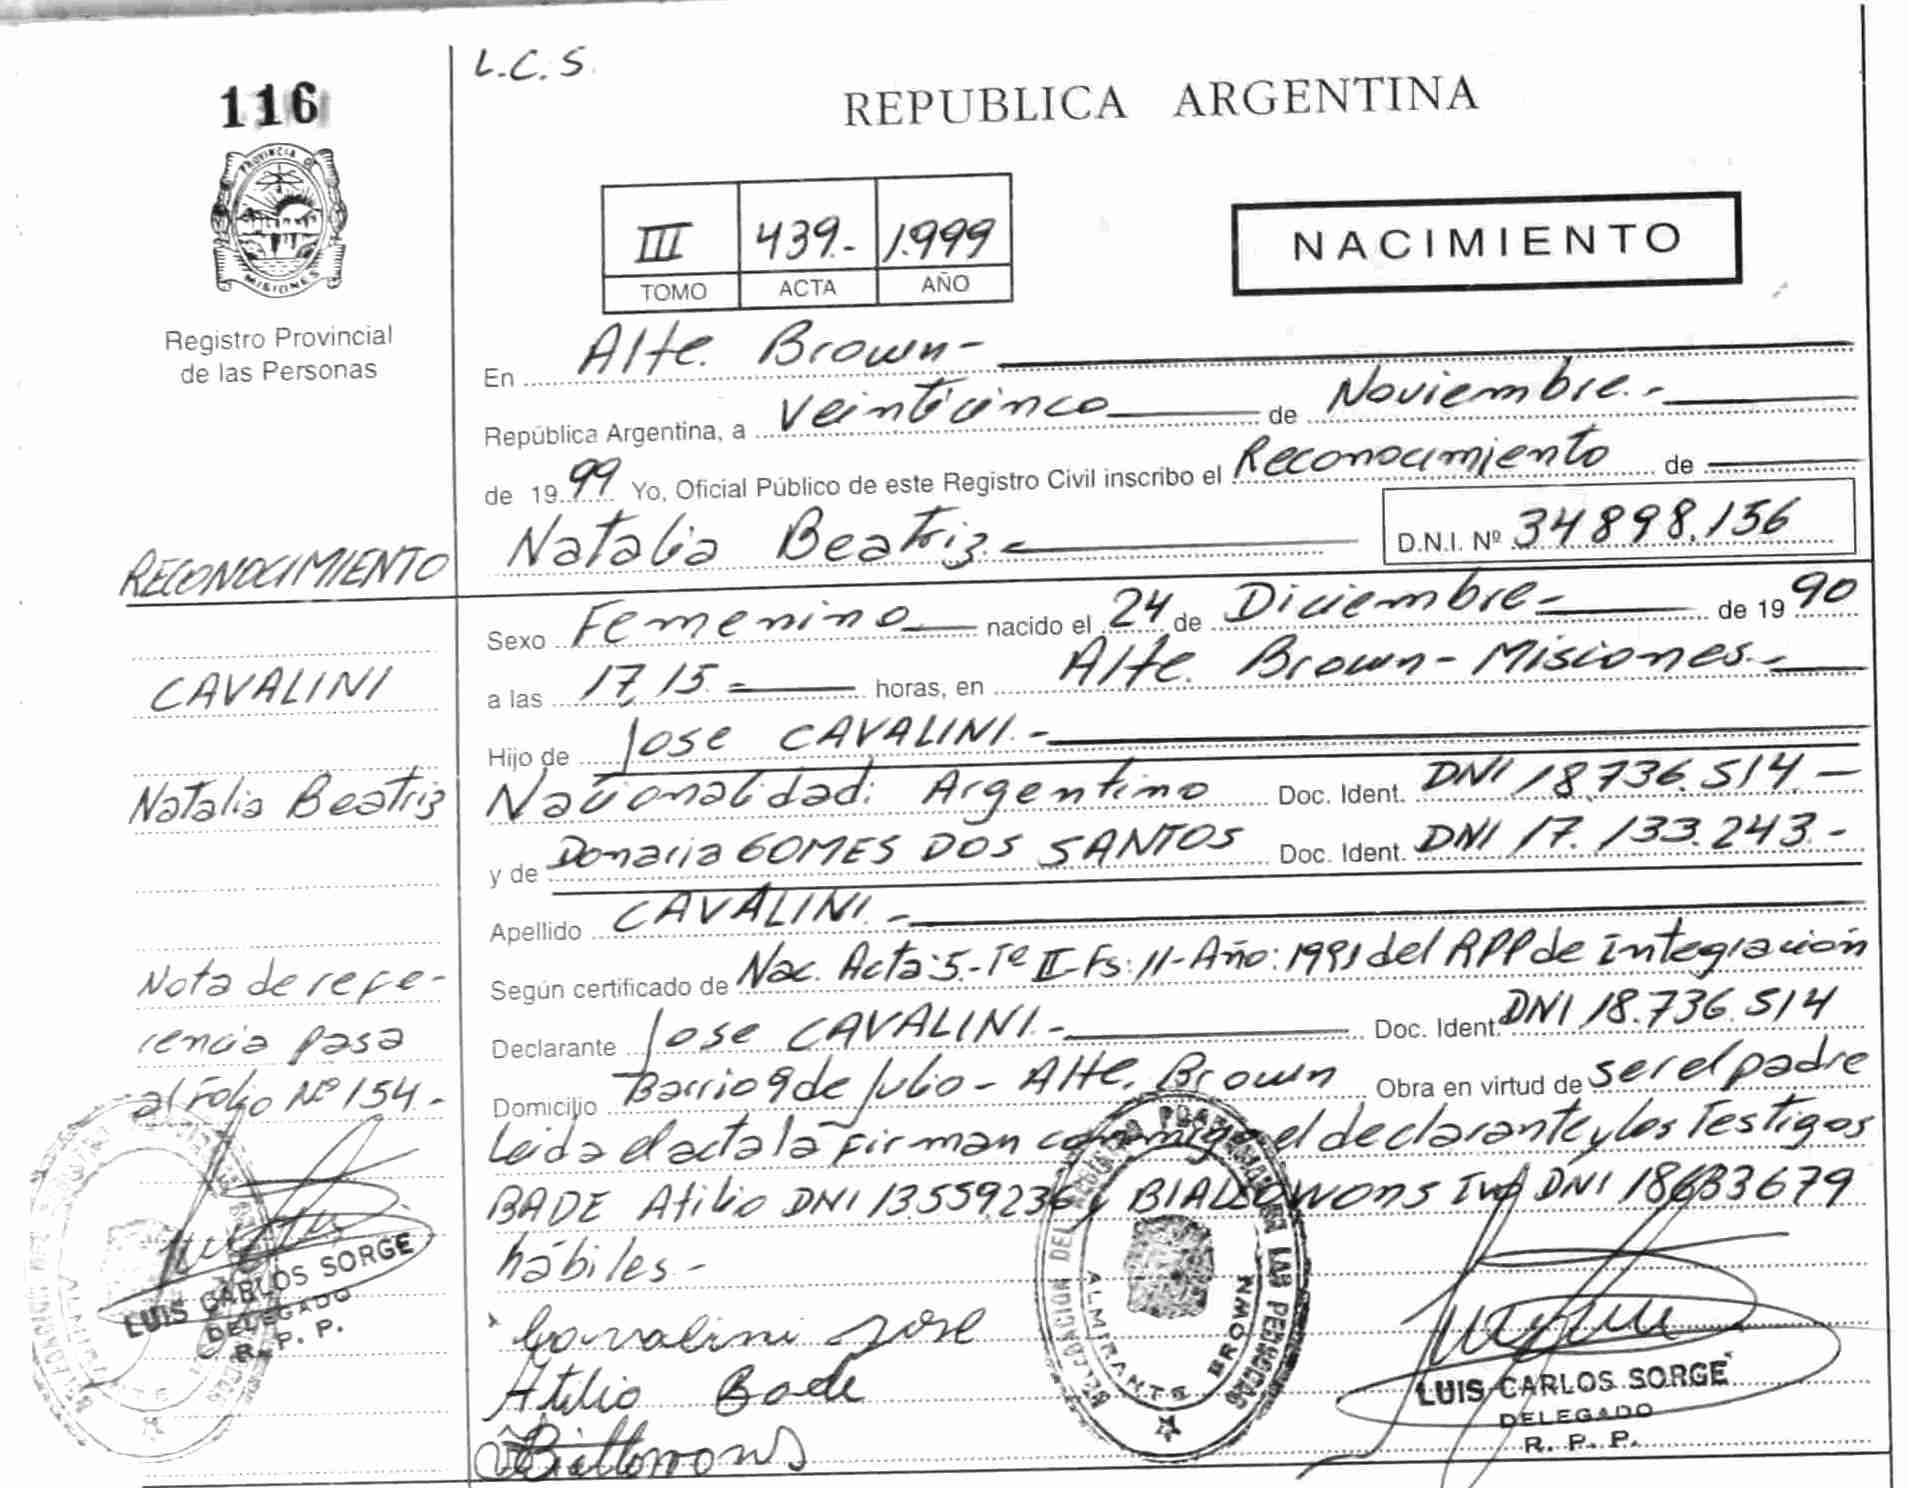 L.C.S.
116
REPUBLICA ARGENTINA
PROVINCIA DE
MISIONES
III 439.- 1.999
TOMO ACTA AÑO
NACIMIENTO
Registro Provincial
de las Personas
En Alte. Brown-
República Argentina, a Veinticinco de Noviembre.-
de 19 99 Yo, Oficial Público de este Registro Civil inscribo el Reconocimiento de
Natalia Beatriz.- D.N.I. Nº 34898.156
RECONOCIMIENTO
Sexo Femenino nacido el 24 de Diciembre- de 19 90
CAVALINI
a las 17,15.- horas, en Alte. Brown - Misiones.-
Hijo de Jose CAVALINI.-
Natalia Beatriz
Nacionalidad: Argentino Doc. Ident. DNI 18.736.514.-
y de Donaria GOMES DOS SANTOS Doc. Ident. DNI 17.133.243.-
Apellido CAVALINI.-
Nota de refe-
rencia pasa
al folio Nº 154.-
Según certificado de Nac. Acta:5.-Tº II-Fs:11-Año:1991 del RPP de Integración
Declarante Jose CAVALINI.- Doc. Ident. DNI 18.736.514
Domicilio Barrio 9 de Julio - Alte. Brown Obra en virtud de ser el padre
Leida el acta la firman conmigo el declarante y los Testigos
BADE Atilio DNI 13559236 y BIALLOWONS Ivo DNI 18683679
hábiles.-
Cavalini Jose
Atilio Bade
Biallowons
DELEGACION DEL REGISTRO PROVINCIAL DE LAS PERSONAS
ALMIRANTE BROWN
LUIS CARLOS SORGE
DELEGADO
R. P. P.
LUIS CARLOS SORGE
DELEGADO
R. P. P.